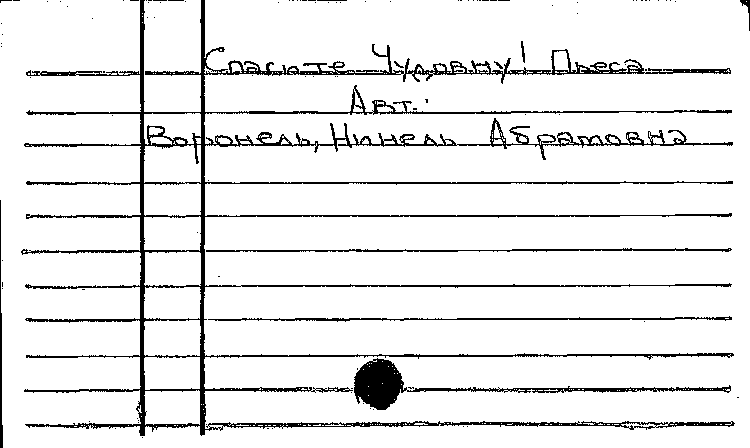 Спасите Чудовну! Пьеса
Авт.:
Воронель, Нинель Абрамовна